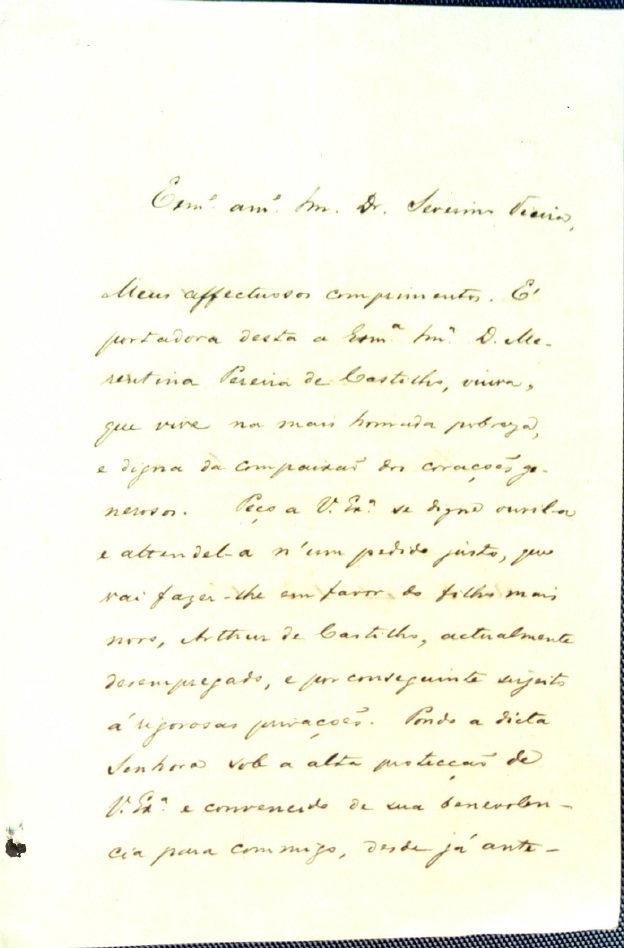 Exmº. amº. Snr. Dr. Severino Vieira,
Meus affectuosos comprimentos. É
portadora desta a Exmª Snrª D. Me-
rentina Pereira de Castilho, viuva,
que vive na mais honrada pobreza,
e digna da compaixaõ dos coraçoẽs ge-
nerosos. Peço a V. Exª. se digne ouvil-a
e attendel-a n'um pedido justo, que
vai fazer-lhe em favor do filho mais
novo, Arthur de Castilho, actualmente
desempregado, e por conseguinte sujeito
á rigorosas privaçoẽs. Pondo a dicta
Senhora sob a alta protecçaõ de
V. Exª. e convencido de sua benevolen-
cia para commigo, desde já ante-